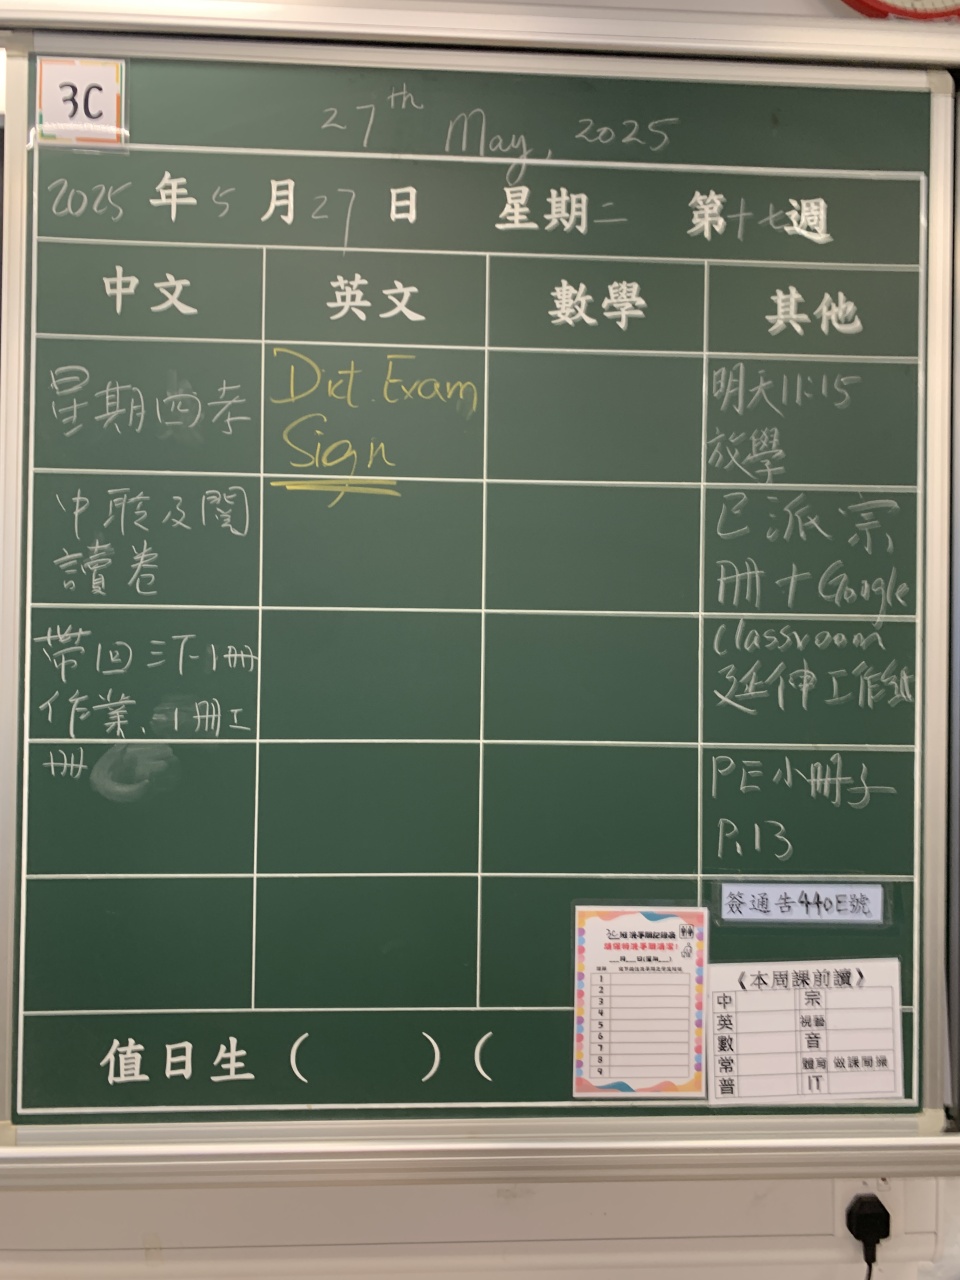 3C
27th May, 2025
2025年5月27日 星期二 第十七週
中文 英文 數學 其他
星期四考
中聆及閱
讀卷
帶回三下1冊
作業、1冊工
冊
Dict. Exam
Sign
明天11:15
放學
已派宗
冊+Google
Classroom
延伸工作紙
PE小冊子
P.13
簽通告440E號
值日生( )(
1
2
3
4
5
6
7
8
9
《本周課前讀》
中 宗
英 視藝
數 音
常 體育 做課間操
普 IT